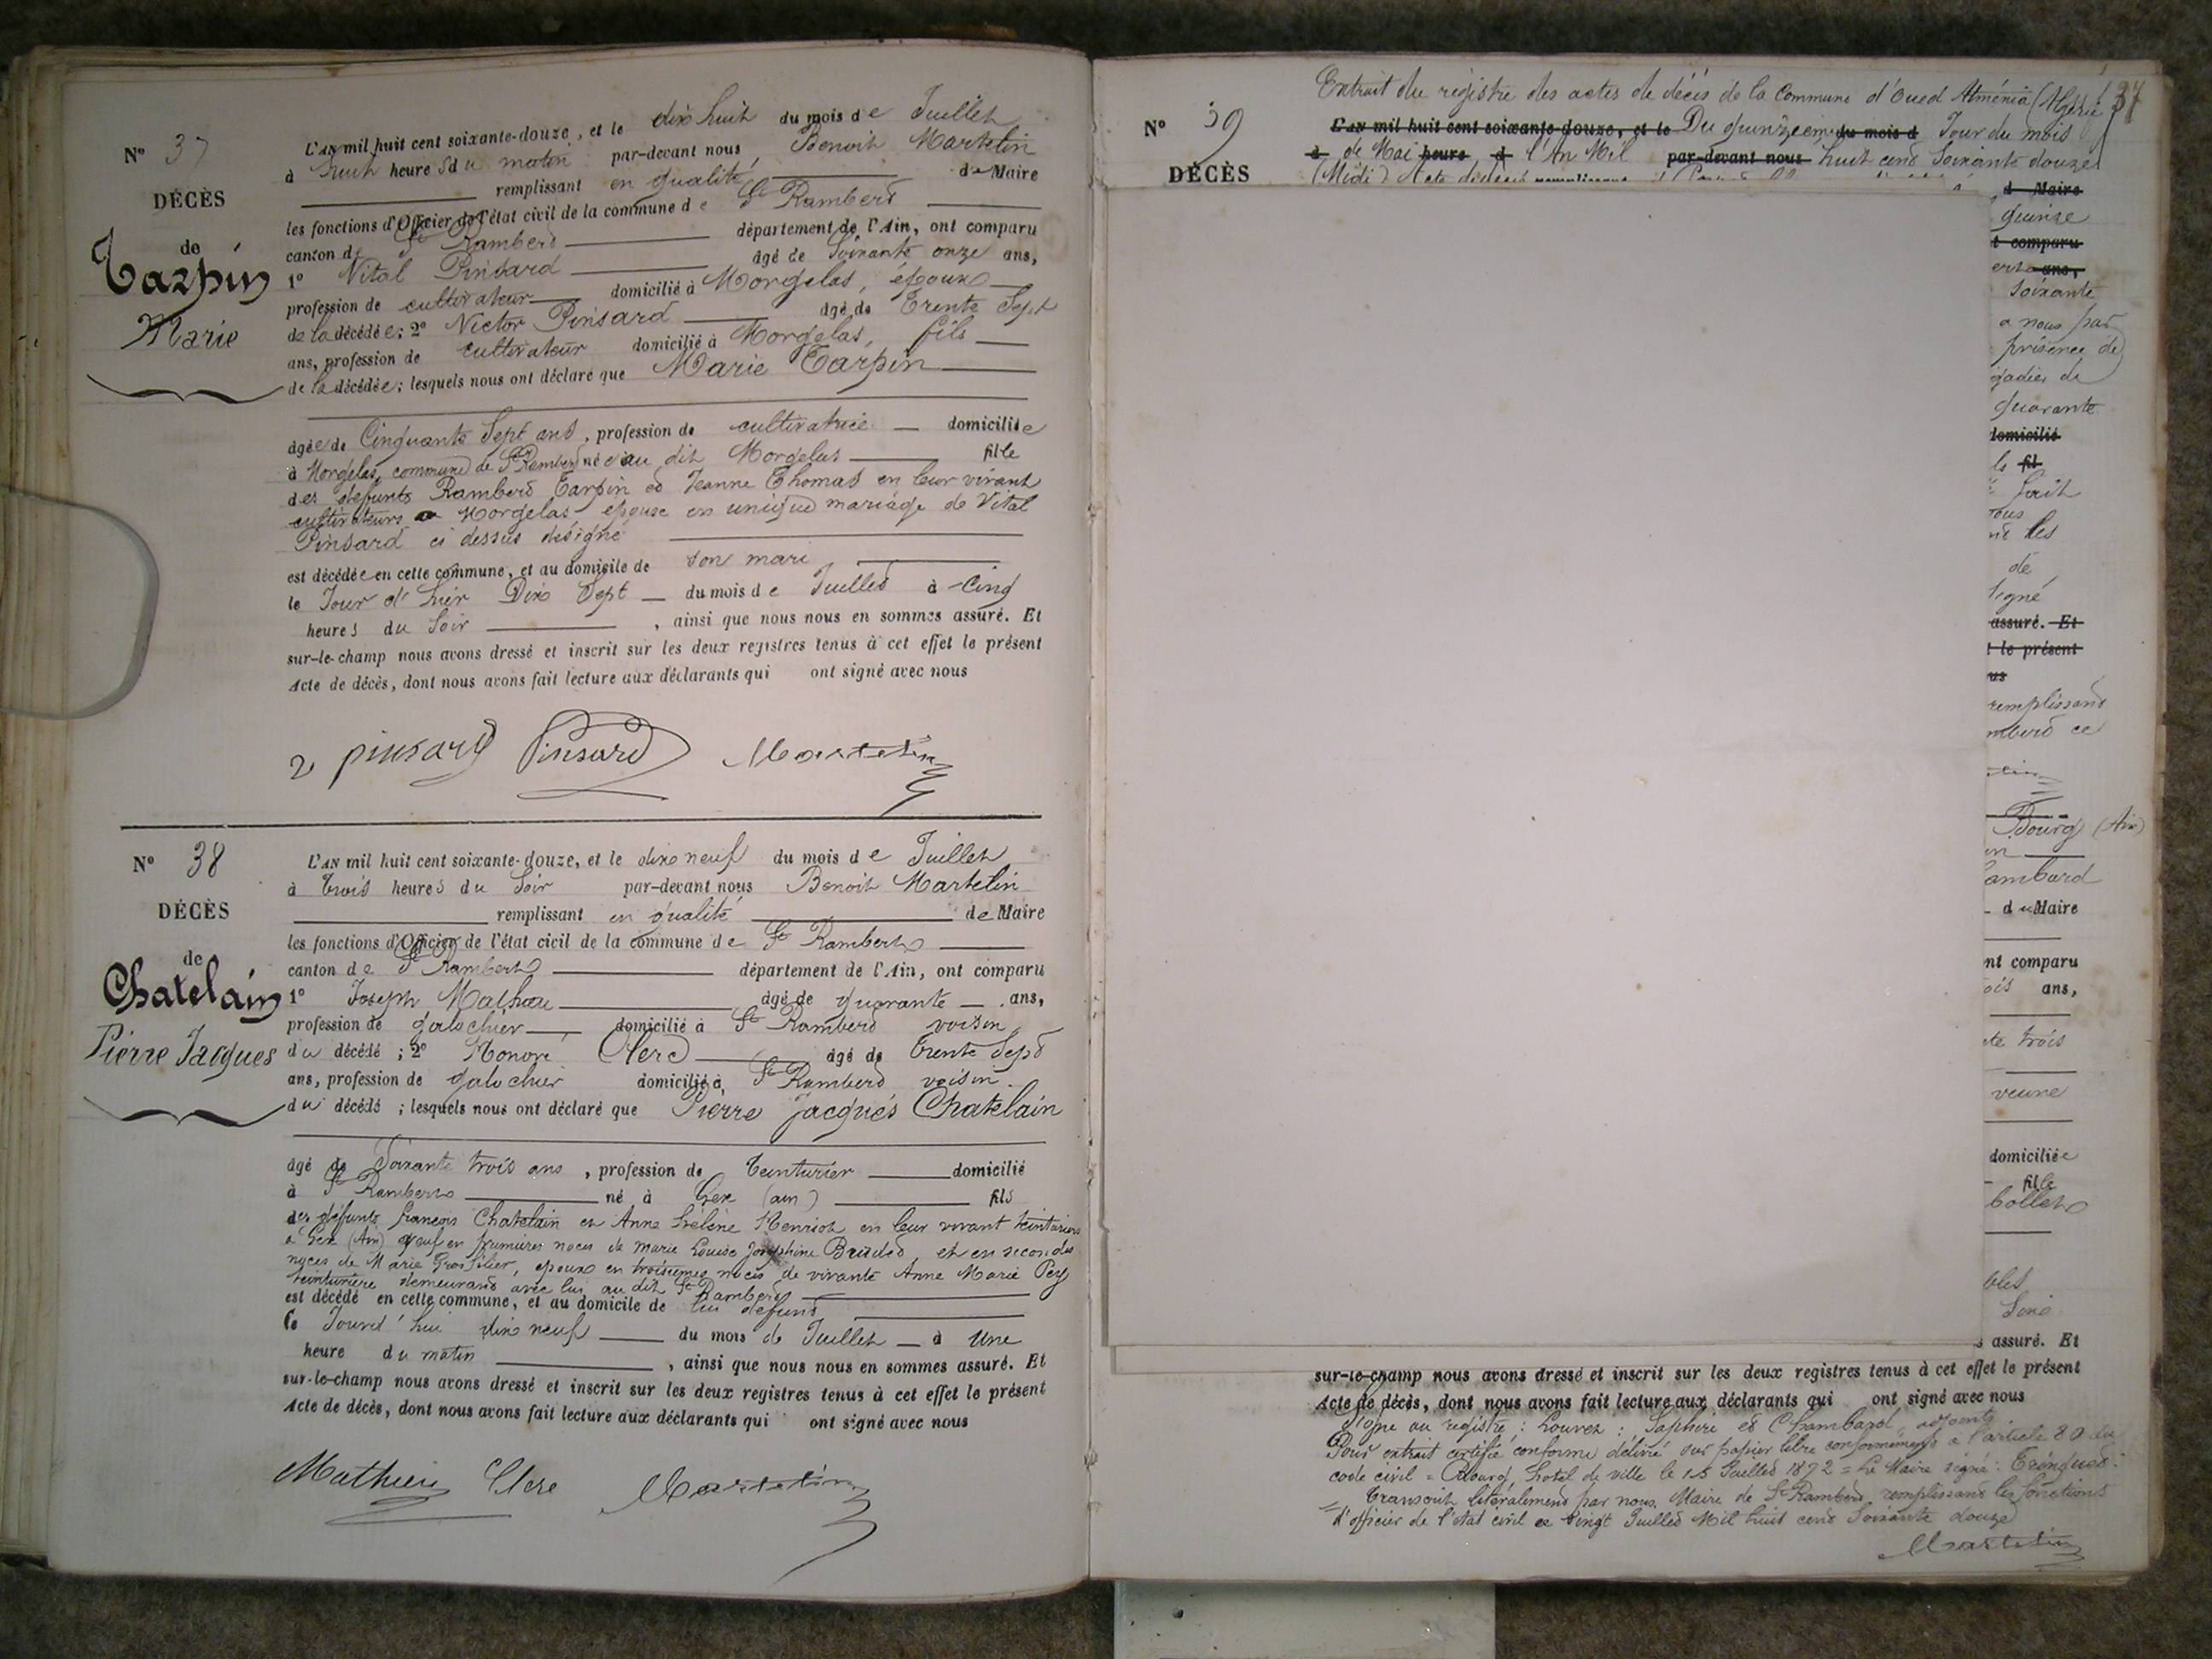 N° 37
DÉCÈS
de
Tarpin
Marie
L'AN mil huit cent soixante-douze, et le dix huit du mois de Juillet
à huit heures du matin par-devant nous Benoit Martelin
remplissant en qualité de Maire
les fonctions d'Officier de l'état civil de la commune de St Rambert
canton de St Rambert département de l'Ain, ont comparu
1° Vital Pinsard âgé de Soixante onze ans,
profession de cultivateur domicilié à Morgelas, époux
de la décédée; 2° Victor Pinsard âgé de Trente Sept
ans, profession de cultivateur domicilié à Morgelas, fils
de la décédée; lesquels nous ont déclaré que Marie Tarpin
âgée de Cinquante Sept ans, profession de cultivatrice domiciliée
à Morgelas, commune de St Rambert née au dit Morgelas fille
des défunts Rambert Tarpin et Jeanne Thomas en leur vivant
cultivateurs a Morgelas épouse en unique mariage de Vital
Pinsard ci dessus désigné
est décédée en cette commune, et au domicile de son mari
le Jour d'hier Dix Sept du mois de Juillet à Cinq
heures du Soir, ainsi que nous nous en sommes assuré. Et
sur-le-champ nous avons dressé et inscrit sur les deux registres tenus à cet effet le présent
Acte de décès, dont nous avons fait lecture aux déclarants qui ont signé avec nous
pinsard Pinsard Martelin
N° 38
DÉCÈS
de
Chatelain
Pierre Jacques
L'AN mil huit cent soixante-douze, et le dix neuf du mois de Juillet
à trois heures du Soir par-devant nous Benoit Martelin
remplissant en qualité de Maire
les fonctions d'Officier de l'état civil de la commune de St Rambert
canton de St Rambert département de l'Ain, ont comparu
1° Joseph Mathieu âgé de quarante ans,
profession de galochier domicilié à St Rambert voisin
du décédé; 2° Honoré Clerc âgé de trente Sept
ans, profession de galochier domicilié à St Rambert voisin
du décédé; lesquels nous ont déclaré que Pierre Jacques Chatelain
âgé de Soixante trois ans, profession de teinturier domicilié
à St Rambert né à Gex (ain) fils
des défunts françois Chatelain et Anne helène Henriot en leur vivant teinturiers
à Gex (Ain) veuf en premières noces de Marie Louise Josephine et en secondes
noces de Marie, epoux en troisièmes noces de vivante Anne Marie Pey
teinturière demeurant avec lui au dit St Rambert
est décédé en cette commune, et au domicile de lui defunt
le Jourd'hui dix neuf du mois de Juillet à Une
heure du matin, ainsi que nous nous en sommes assuré. Et
sur-le-champ nous avons dressé et inscrit sur les deux registres tenus à cet effet le présent
Acte de décès, dont nous avons fait lecture aux déclarants qui ont signé avec nous
Mathieu Clerc Martelin
Extrait du registre des actes de décès de la Commune d'Oued Atménia (Algérie) 37
N° 39
DÉCÈS
L'AN mil huit cent soixante-douze, et le Du quinzième du mois d Jour du mois
à de Mai heure d l'An Mil par-devant nous huit cent Soixante douze
(Midi) Acte
d Maire
quinze
t comparu
ans,
Soixante
a nous par
présence de
gadier de
quarante
domicilié
le fil
fait
ous
les
de
signé
assuré. Et
t le présent
us
remplissant
mbert ce
Bourg (Ain)
ambard
du Maire
nt comparu
ois ans,
te trois
veuve
domiciliée
fille
Collet
bles
assuré. Et
sur-le-champ nous avons dressé et inscrit sur les deux registres tenus à cet effet le présent
Acte de décès, dont nous avons fait lecture aux déclarants qui ont signé avec nous
Signé au registre: Louvez: et Chambard, adjoints
Pour extrait certifié conforme délivré sur papier libre conformément a l'article 80 du
code civil = Bourg, hotel de ville le 15 Juillet 1872 = Le Maire signé:
Transcrit litéralement par nous Maire de St Rambert remplissant les fonctions
d'officier de l'état civil ce Vingt Juillet Mil huit cent Soixante douze
Martelin